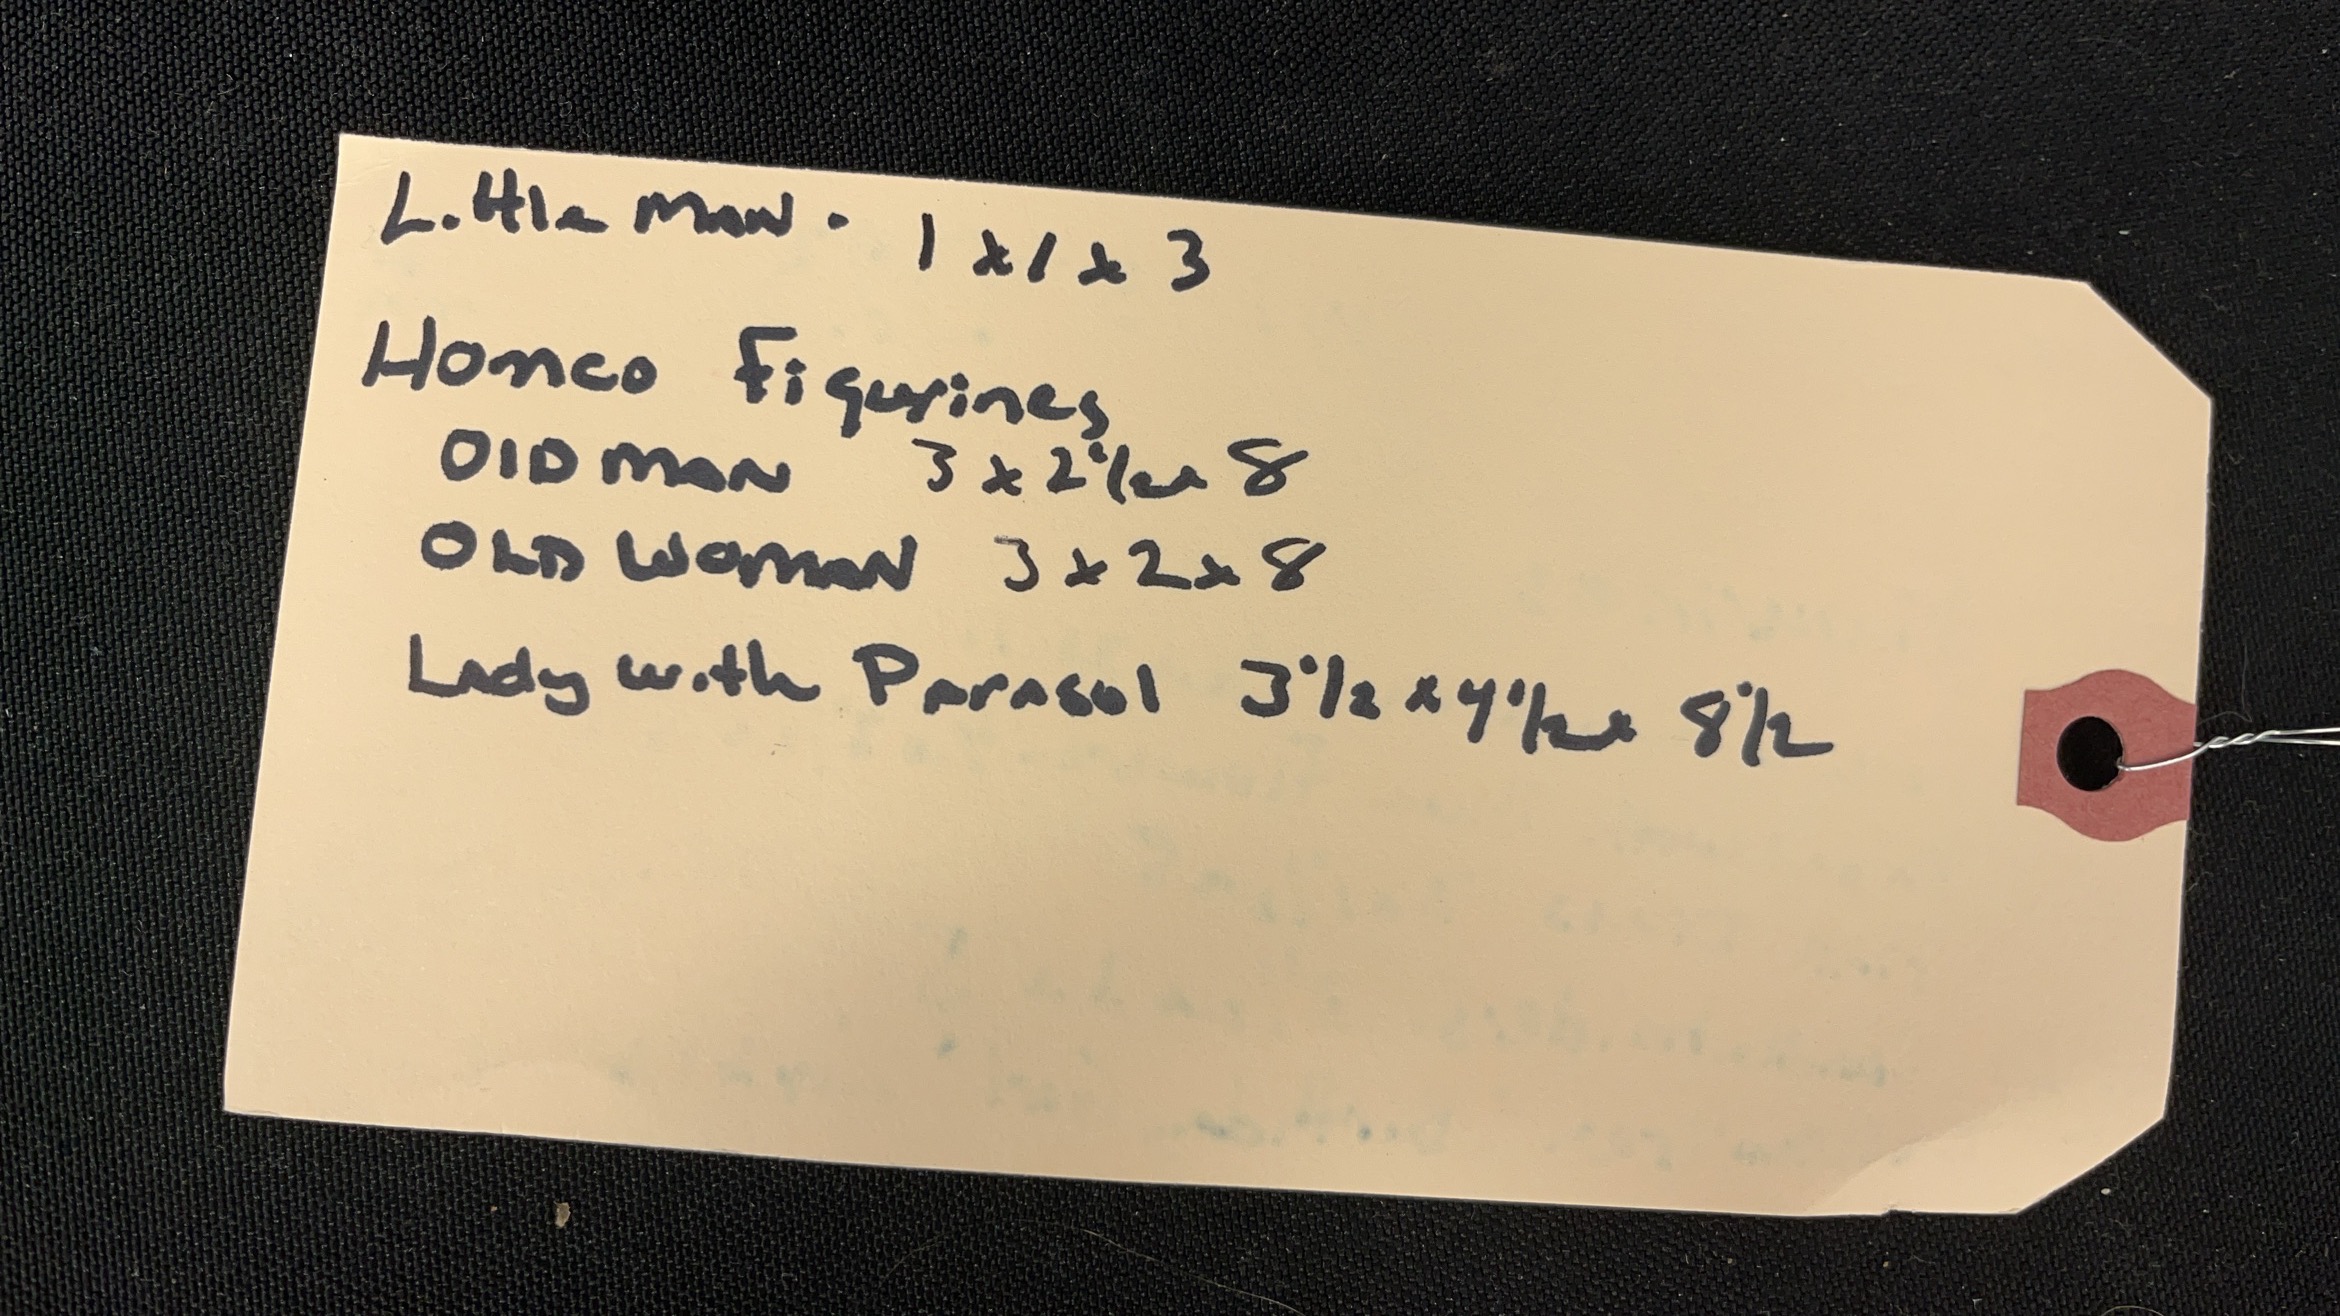 Little Man - 1 x 1 x 3
Homco Figurines
Old Man 3 x 2 1/2 x 8
OLD WOMAN 3 x 2 x 8
Lady with Parasol 3 1/2 x 4 1/2 x 8 1/2